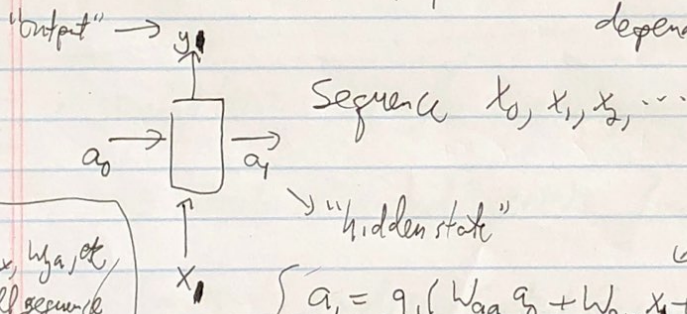 "output" → y
depen
Sequence x₀, x₁, x₂, ...
a₀ → → a₁
"hidden state"
x, Wya, et
x
sequence
a₁ = g₁(Waa a₀ + W x₁ +